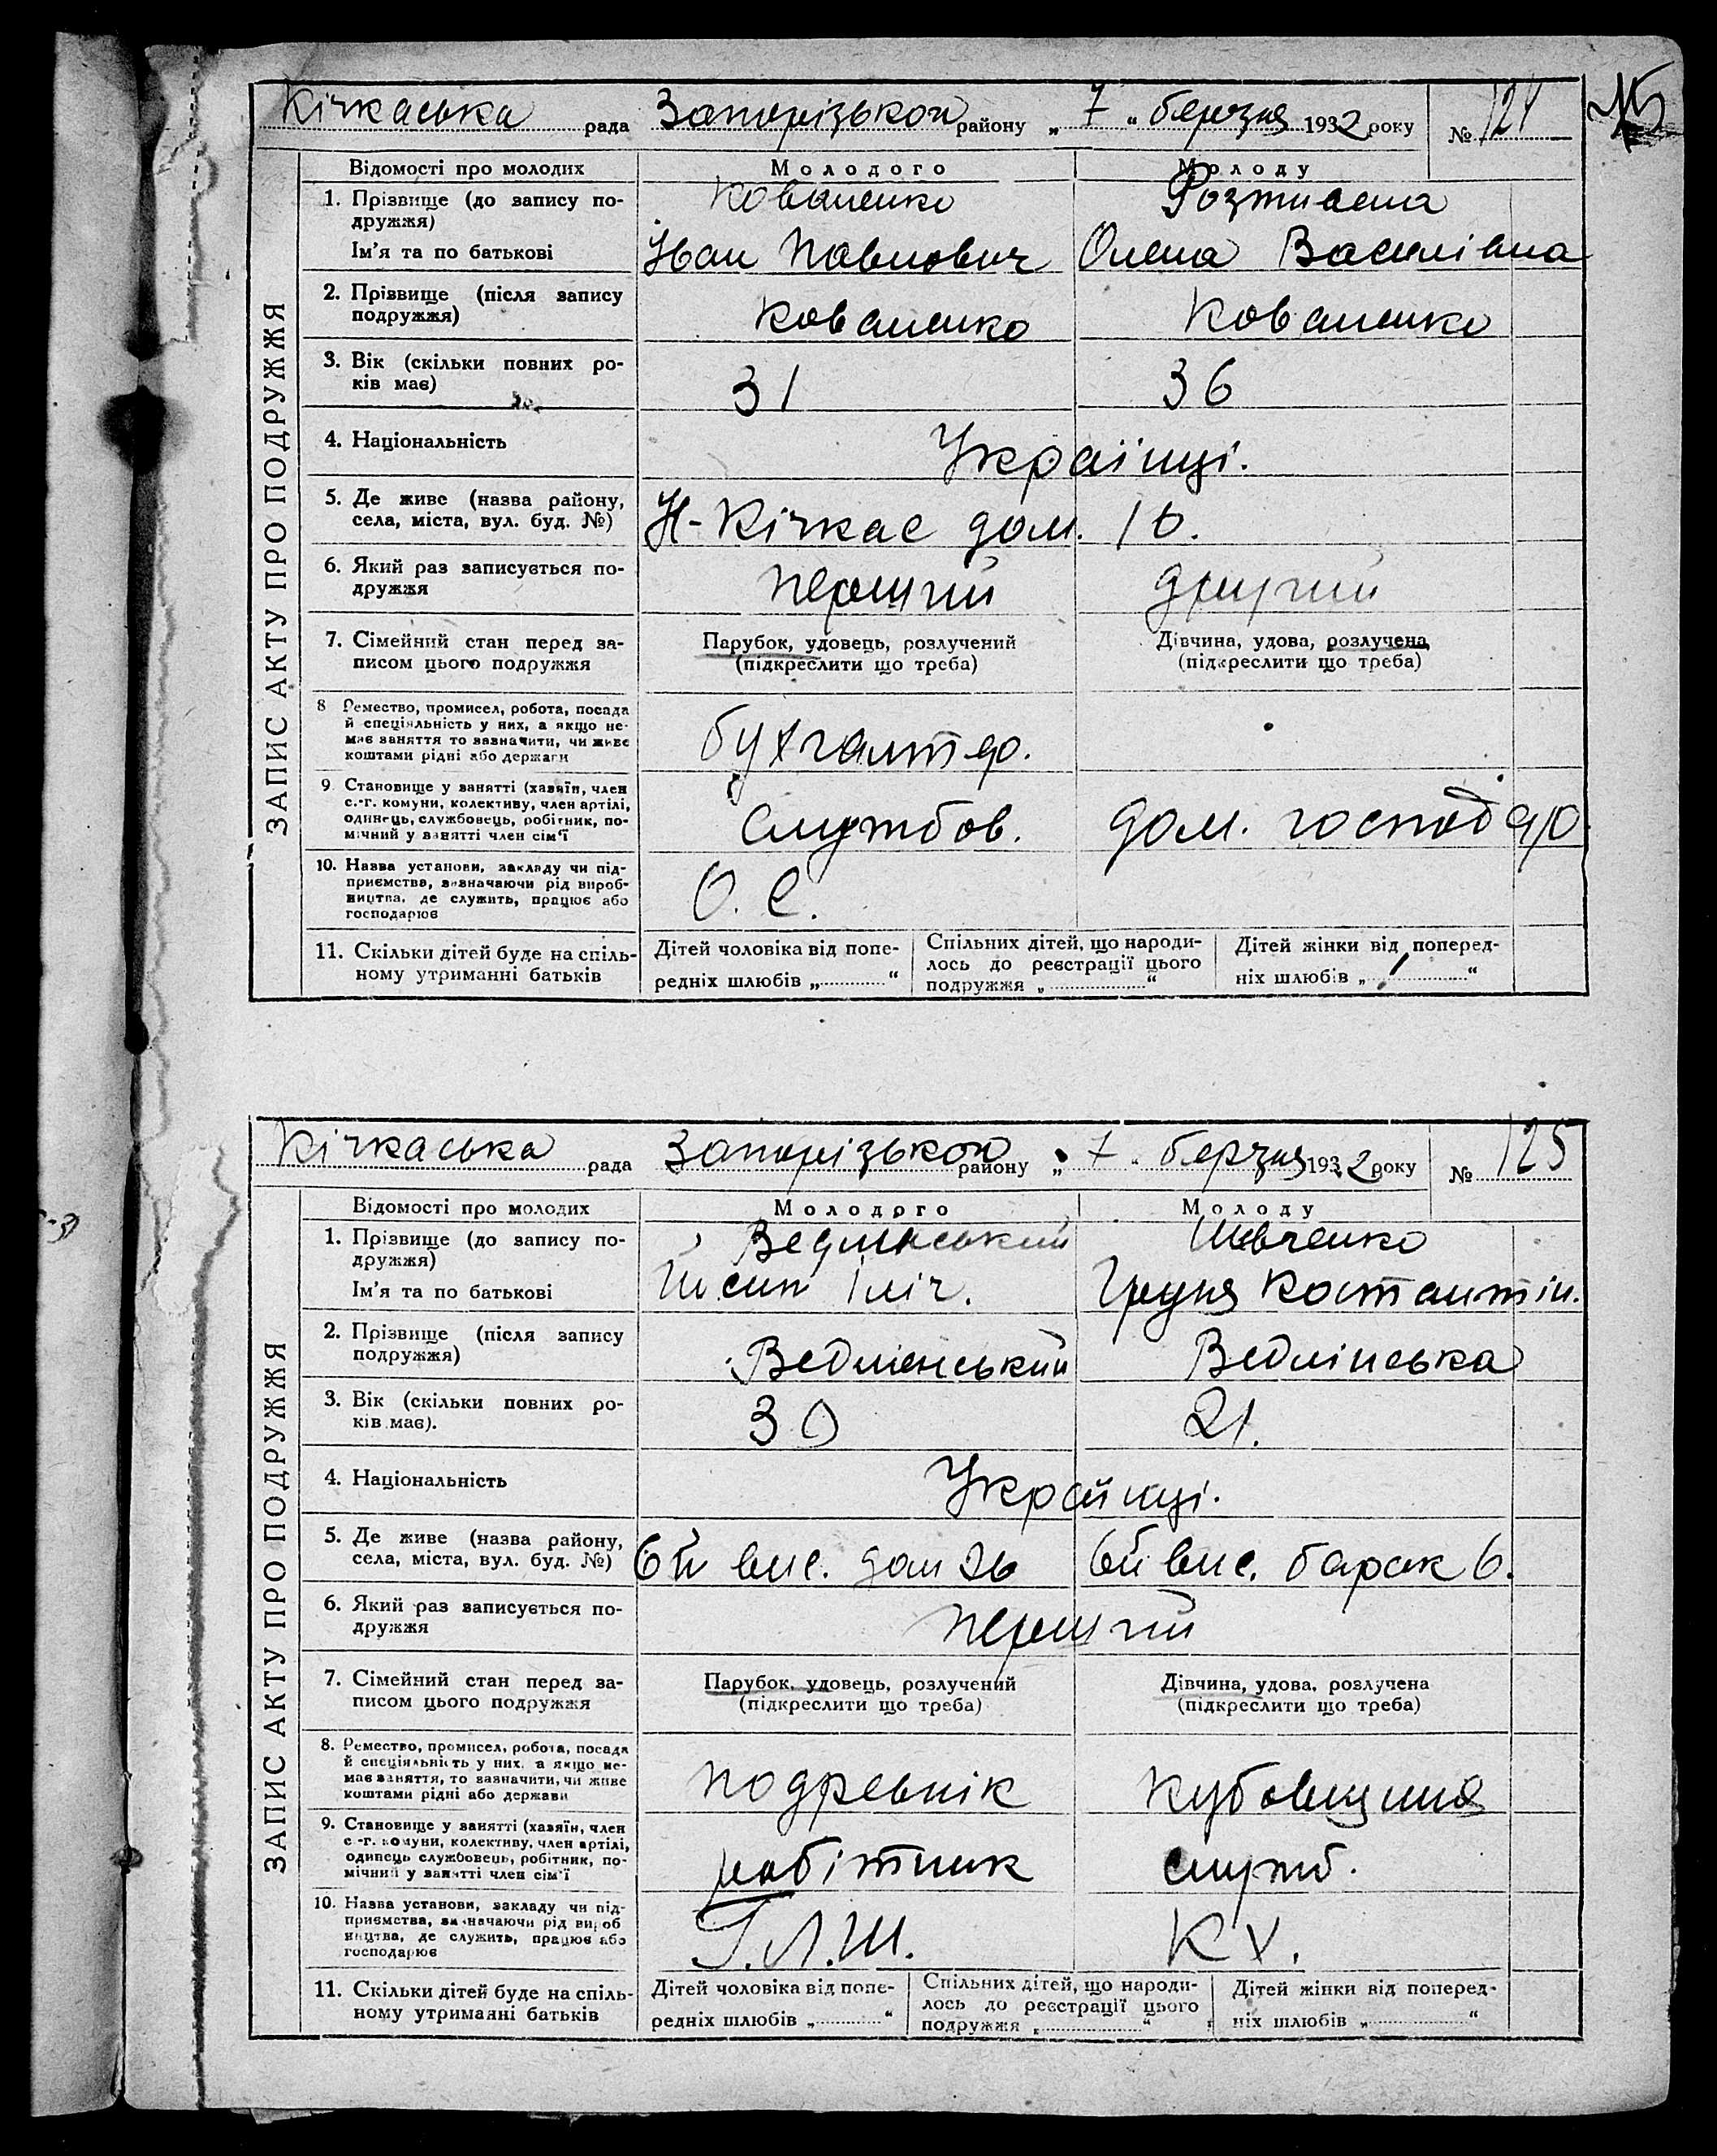 Кічкаська рада Запорізького району „ 7 " березня 1932 року № 124
ЗАПИС АКТУ ПРО ПОДРУЖЖЯ
Відомості про молодих Молодого Молоду
1. Прізвище (до запису по-
дружжя) Коваленко
Ім'я та по батькові Іван Павлович Олена Василівна
2. Прізвище (після запису
подружжя) Коваленко Коваленко
3. Вік (скільки повних ро-
ків має) 31 36
4. Національність Українці.
5. Де живе (назва району,
села, міста, вул. буд. №) Н-Кічкас дом. 16.
6. Який раз записується по-
дружжя перший другий
7. Сімейний стан перед за- Парубок, удовець, розлучений Дівчина, удова, розлучена
писом цього подружжя (підкреслити що треба) (підкреслити що треба)
8 Ремество, промисел, робота, посада
й спеціяльність у них, а якщо не-
має заняття то зазначити, чи живе
коштами рідні або держави бухгалтер.
9 Становище у занятті (хазяїн, член
с.-г. комуни, колективу, член артілі,
одинець, службовець, робітник, по-
мічний у занятті член сім'ї Службов. дом. господар.
10. Назва установи, закладу чи під-
приємства, зазначаючи рід вироб-
ництва, де служить, працює або
господарює О. С.
11. Скільки дітей буде на спіль- Дітей чоловіка від попе- Спільних дітей, що народи- Дітей жінки від поперед-
ному утриманні батьків редніх шлюбів „ " лось до реєстрації цього ніх шлюбів „ 1 "
подружжя „ "
Кічкаська рада Запорізького району „ 7 " березня 1932 року № 125
ЗАПИС АКТУ ПРО ПОДРУЖЖЯ
Відомості про молодих Молодого Молоду
1. Прізвище (до запису по- Шевченко
дружжя)
Ім'я та по батькові Йосип Іліч. Груня Костантін.
2. Прізвище (після запису
подружжя) Ведмінський Ведмінська
3. Вік (скільки повних ро-
ків має). 30 21.
4. Національність Українці.
5. Де живе (назва району,
села, міста, вул. буд. №) 6й вис. дом 26 6й вис. барак 6.
6. Який раз записується по-
дружжя перший
7. Сімейний стан перед за- Парубок, удовець, розлучений Дівчина, удова, розлучена
писом цього подружжя (підкреслити що треба) (підкреслити що треба)
8. Ремество, промисел, робота, посада
й спеціяльність у них, а якщо не-
має заняття, то зазначити, чи живе
коштами рідні або держави подревнік кубовщиця
9. Становище у занятті (хазяїн, член
с-г. комуни, колективу, член артілі,
одинець службовець, робітник, по-
мічний у занятті член сім'ї робітник служб.
10. Назва установи, закладу чи під-
приємства, зазначаючи рід вироб
ництва, де служить, працює або
господарює Г.Л.Ш. КХ.
11. Скільки дітей буде на спіль- Дітей чоловіка від попе- Спільних дітей, що народи- Дітей жінки від поперед-
ному утриманні батьків редніх шлюбів „ " лось до реєстрації цього ніх шлюбів „ "
подружжя „ "